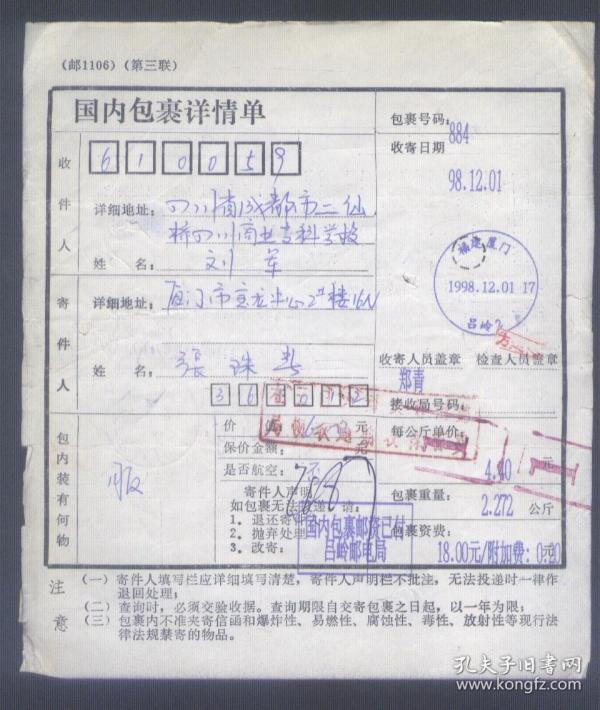 (邮1106)(第三联)
国内包裹详情单
包裹号码:884
收寄日期
98.12.01
收件人
610059
详细地址:四川省成都市二仙
桥四川商业专科学校
姓名:刘军
福建厦门
1998.12.01 17
吕岭
寄件人
详细地址:厦门市
姓名:张珠
361012
收寄人员盖章 检查人员盖章
郑青
接收局号码:
包内装有何物
服
价 值 元
保价金额: 元
是否航空:
寄件人声明
如包裹无法投递,请:
1. 退还寄件
2. 抛弃处理
3. 改寄:
国内包裹邮资已付
吕岭邮电局
每公斤单价:
4.40 元
包裹重量:
2.272 公斤
包裹资费:
18.00元/附加费:0.20
注意
(一)寄件人填写栏应详细填写清楚,寄件人声明栏不批注,无法投递时一律作
退回处理;
(二)查询时,必须交验收据。查询期限自交寄包裹之日起,以一年为限;
(三)包裹内不准夹寄信函和爆炸性、易燃性、腐蚀性、毒性、放射性等现行法
律法规禁寄的物品。
孔夫子旧书网
www.kongfz.com